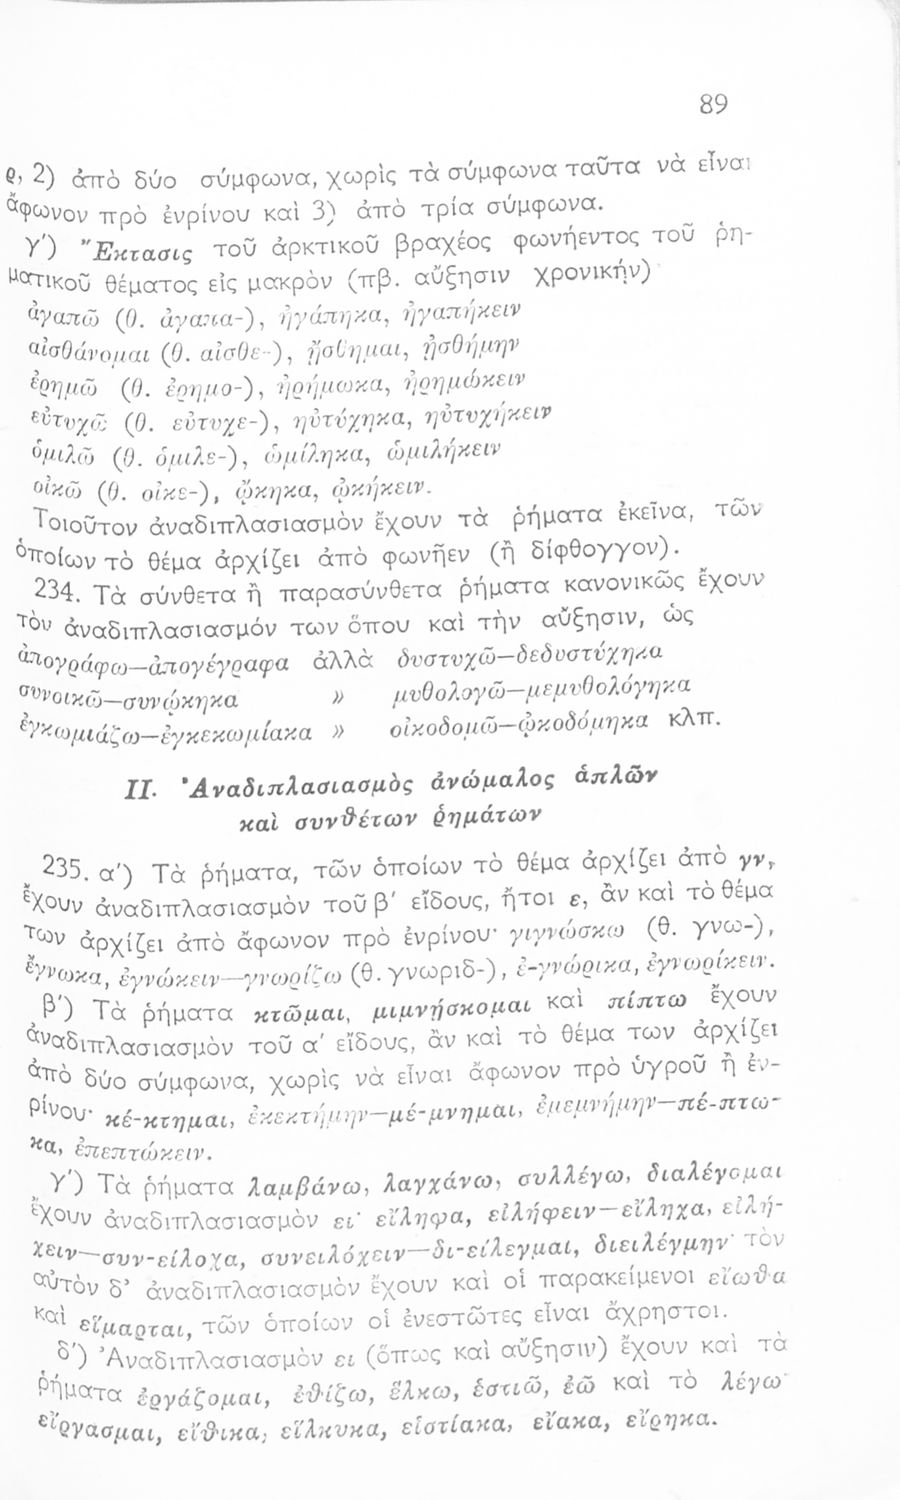 89
ρ, 2) ἀπὸ δύο σύμφωνα, χωρὶς τὰ σύμφωνα ταῦτα νὰ εἶναι
ἄφωνον πρὸ ἐνρίνου καὶ 3) ἀπὸ τρία σύμφωνα.
γ΄) Ἔκτασις τοῦ ἀρκτικοῦ βραχέος φωνήεντος τοῦ ῥη-
ματικοῦ θέματος εἰς μακρὸν (πβ. αὔξησιν χρονικὴν)
ἀγαπῶ (θ. ἀγαπα-), ἠγάπηκα, ἠγαπήκειν
αἰσθάνομαι (θ. αἰσθε-), ᾔσθημαι, ᾐσθήμην
ἐρημῶ (θ. ἐρημο-), ἠρήμωκα, ἠρημώκειν
εὐτυχῶ (θ. εὐτυχε-), ηὐτύχηκα, ηὐτυχήκειν
ὁμιλῶ (θ. ὁμιλε-), ὡμίληκα, ὡμιλήκειν
οἰκῶ (θ. οἰκε-), ᾤκηκα, ᾠκήκειν.
Τοιοῦτον ἀναδιπλασιασμὸν ἔχουν τὰ ῥήματα ἐκεῖνα, τῶν
ὁποίων τὸ θέμα ἀρχίζει ἀπὸ φωνῆεν (ἢ δίφθογγον).
234. Τὰ σύνθετα ἢ παρασύνθετα ῥήματα κανονικῶς ἔχουν
τὸν ἀναδιπλασιασμόν των ὅπου καὶ τὴν αὔξησιν, ὡς
ἀπογράφω—ἀπογέγραφα ἀλλὰ δυστυχῶ—δεδυστύχηκα
συνοικῶ—συνῴκηκα » μυθολογῶ—μεμυθολόγηκα
ἐγκωμιάζω—ἐγκεκωμίακα » οἰκοδομῶ—ᾠκοδόμηκα κλπ.
II. Ἀναδιπλασιασμὸς ἀνώμαλος ἁπλῶν
καὶ συνθέτων ῥημάτων
235. α΄) Τὰ ῥήματα, τῶν ὁποίων τὸ θέμα ἀρχίζει ἀπὸ γν,
ἔχουν ἀναδιπλασιασμὸν τοῦ β΄ εἴδους, ἤτοι ε, ἂν καὶ τὸ θέμα
των ἀρχίζει ἀπὸ ἄφωνον πρὸ ἐνρίνου· γιγνώσκω (θ. γνω-),
ἔγνωκα, ἐγνώκειν—γνωρίζω (θ. γνωριδ-), ἐ-γνώρικα, ἐγνωρίκειν.
β΄) Τὰ ῥήματα κτῶμαι, μιμνήσκομαι καὶ πίπτω ἔχουν
ἀναδιπλασιασμὸν τοῦ α΄ εἴδους, ἂν καὶ τὸ θέμα των ἀρχίζει
ἀπὸ δύο σύμφωνα, χωρὶς νὰ εἶναι ἄφωνον πρὸ ὑγροῦ ἢ ἐν-
ρίνου· κέ-κτημαι, ἐκεκτήμην—μέ-μνημαι, ἐμεμνήμην—πέ-πτω-
κα, ἐπεπτώκειν.
γ΄) Τὰ ῥήματα λαμβάνω, λαγχάνω, συλλέγω, διαλέγομαι
ἔχουν ἀναδιπλασιασμὸν ει· εἴληφα, εἰλήφειν—εἴληχα, εἰλή-
χειν—συν-είλοχα, συνειλόχειν—δι-είλεγμαι, διειλέγμην· τὸν
αὐτὸν δ' ἀναδιπλασιασμὸν ἔχουν καὶ οἱ παρακείμενοι εἴωθα
καὶ εἵμαρται, τῶν ὁποίων οἱ ἐνεστῶτες εἶναι ἄχρηστοι.
δ΄) Ἀναδιπλασιασμὸν ει (ὅπως καὶ αὔξησιν) ἔχουν καὶ τὰ
ῥήματα ἐργάζομαι, ἐθίζω, ἕλκω, ἑστιῶ, ἐῶ καὶ τὸ λέγω·
εἴργασμαι, εἴθικα, εἵλκυκα, εἱστίακα, εἴακα, εἴρηκα.